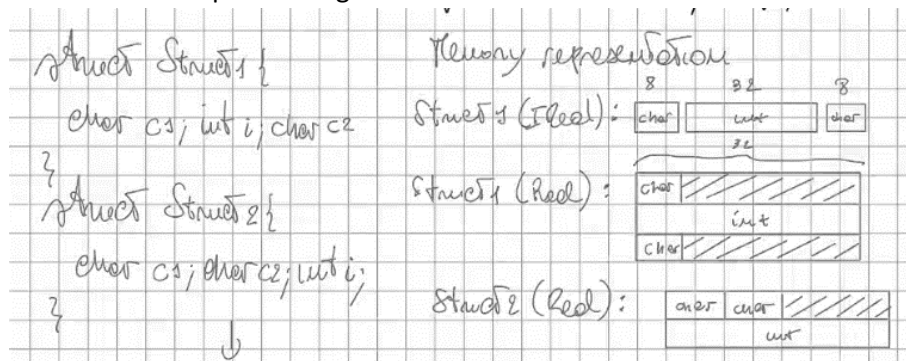 struct Struct1 {
char c1; int i; char c2
}
struct Struct2 {
char c1; char c2; int i;
}
Memory representation
8 32 8
Struct1 (Ideal): char int char
32
Struct1 (Real): char
int
char
Struct2 (Real): char char
int